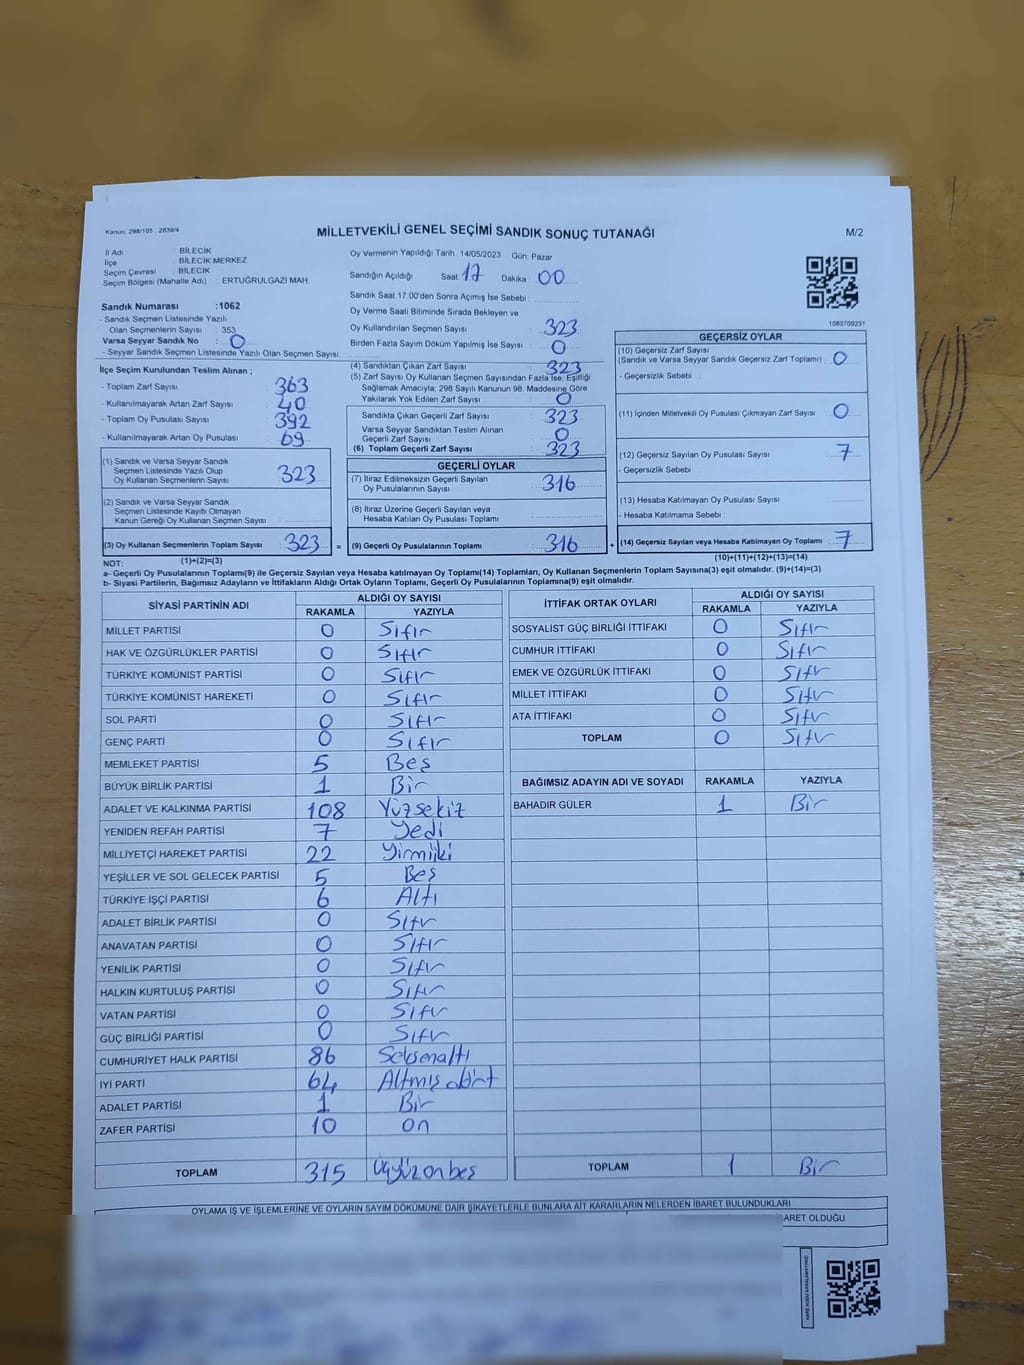 Kanun: 298/105 , 2839/4
MİLLETVEKİLİ GENEL SEÇİMİ SANDIK SONUÇ TUTANAĞI
M/2
İl Adı : BİLECİK
İlçe : BİLECİK MERKEZ
Seçim Çevresi : BİLECİK
Seçim Bölgesi (Mahalle Adı) : ERTUĞRULGAZİ MAH.
Sandık Numarası :1062
- Sandık Seçmen Listesinde Yazılı
Olan Seçmenlerin Sayısı : 353
Varsa Seyyar Sandık No : 0
- Seyyar Sandık Seçmen Listesinde Yazılı Olan Seçmen Sayısı:
İlçe Seçim Kurulundan Teslim Alınan ;
- Toplam Zarf Sayısı : 363
- Kullanılmayarak Artan Zarf Sayısı : 40
- Toplam Oy Pusulası Sayısı : 392
- Kullanılmayarak Artan Oy Pusulası : 69
(1) Sandık ve Varsa Seyyar Sandık
Seçmen Listesinde Yazılı Olup
Oy Kullanan Seçmenlerin Sayısı : 323
(2) Sandık ve Varsa Seyyar Sandık
Seçmen Listesinde Kayıtlı Olmayan
Kanun Gereği Oy Kullanan Seçmen Sayısı :
(3) Oy Kullanan Seçmenlerin Toplam Sayısı : 323 =
Oy Vermenin Yapıldığı Tarih :14/05/2023 Gün: Pazar
Sandığın Açıldığı Saat: 17 Dakika : 00
Sandık Saat 17:00'den Sonra Açımış İse Sebebi :
Oy Verme Saati Bitiminde Sırada Bekleyen ve
Oy Kullandırılan Seçmen Sayısı : 323
Birden Fazla Sayım Döküm Yapılmış İse Sayısı : 0
(4) Sandıktan Çıkan Zarf Sayısı : 323
(5) Zarf Sayısı Oy Kullanan Seçmen Sayısından Fazla İse, Eşitliği
Sağlamak Amacıyla; 298 Sayılı Kanunun 98. Maddesine Göre
Yakılarak Yok Edilen Zarf Sayısı : 0
Sandıkta Çıkan Geçerli Zarf Sayısı : 323
Varsa Seyyar Sandıktan Teslim Alınan
Geçerli Zarf Sayısı : 0
(6) Toplam Geçerli Zarf Sayısı : 323
GEÇERLİ OYLAR
(7) İtiraz Edilmeksizin Geçerli Sayılan
Oy Pusulalarının Sayısı : 316
(8) İtiraz Üzerine Geçerli Sayılan veya
Hesaba Katılan Oy Pusulası Toplamı :
(9) Geçerli Oy Pusulalarının Toplamı : 316 +
1083709231
GEÇERSİZ OYLAR
(10) Geçersiz Zarf Sayısı
(Sandık ve Varsa Seyyar Sandık Geçersiz Zarf Toplamı) : 0
- Geçersizlik Sebebi :
(11) İçinden Milletvekili Oy Pusulası Çıkmayan Zarf Sayısı : 0
(12) Geçersiz Sayılan Oy Pusulası Sayısı : 7
- Geçersizlik Sebebi :
(13) Hesaba Katılmayan Oy Pusulası Sayısı :
- Hesaba Katılmama Sebebi :
(14) Geçersiz Sayılan veya Hesaba Katılmayan Oy Toplamı : 7
NOT: (1)+(2)=(3) (10)+(11)+(12)+(13)=(14)
a- Geçerli Oy Pusulalarının Toplamı(9) ile Geçersiz Sayılan veya Hesaba katılmayan Oy Toplamı(14) Toplamları, Oy Kullanan Seçmenlerin Toplam Sayısına(3) eşit olmalıdır. (9)+(14)=(3)
b- Siyasi Partilerin, Bağımsız Adayların ve İttifakların Aldığı Ortak Oyların Toplamı, Geçerli Oy Pusulalarının Toplamına(9) eşit olmalıdır.
SİYASİ PARTİNİN ADI ALDIĞI OY SAYISI
RAKAMLA YAZIYLA
MİLLET PARTİSİ 0 Sıfır
HAK VE ÖZGÜRLÜKLER PARTİSİ 0 Sıfır
TÜRKİYE KOMÜNİST PARTİSİ 0 Sıfır
TÜRKİYE KOMÜNİST HAREKETİ 0 Sıfır
SOL PARTİ 0 Sıfır
GENÇ PARTİ 0 Sıfır
MEMLEKET PARTİSİ 5 Beş
BÜYÜK BİRLİK PARTİSİ 1 Bir
ADALET VE KALKINMA PARTİSİ 108 Yüzsekiz
YENİDEN REFAH PARTİSİ 7 Yedi
MİLLİYETÇİ HAREKET PARTİSİ 22 Yirmiiki
YEŞİLLER VE SOL GELECEK PARTİSİ 5 Beş
TÜRKİYE İŞÇİ PARTİSİ 6 Altı
ADALET BİRLİK PARTİSİ 0 Sıfır
ANAVATAN PARTİSİ 0 Sıfır
YENİLİK PARTİSİ 0 Sıfır
HALKIN KURTULUŞ PARTİSİ 0 Sıfır
VATAN PARTİSİ 0 Sıfır
GÜÇ BİRLİĞİ PARTİSİ 0 Sıfır
CUMHURİYET HALK PARTİSİ 86 Seksenaltı
İYİ PARTİ 64 Altmış dört
ADALET PARTİSİ 1 Bir
ZAFER PARTİSİ 10 on
TOPLAM 315 Üçyüzonbeş
İTTİFAK ORTAK OYLARI ALDIĞI OY SAYISI
RAKAMLA YAZIYLA
SOSYALİST GÜÇ BİRLİĞİ İTTİFAKI 0 Sıfır
CUMHUR İTTİFAKI 0 Sıfır
EMEK VE ÖZGÜRLÜK İTTİFAKI 0 Sıfır
MİLLET İTTİFAKI 0 Sıfır
ATA İTTİFAKI 0 Sıfır
TOPLAM 0 Sıfır
BAĞIMSIZ ADAYIN ADI VE SOYADI RAKAMLA YAZIYLA
BAHADIR GÜLER 1 Bir
TOPLAM 1 Bir
OYLAMA İŞ VE İŞLEMLERİNE VE OYLARIN SAYIM DÖKÜMÜNE DAİR ŞİKAYETLERLE BUNLARA AİT KARARLARIN NELERDEN İBARET BULUNDUKLARI
BARET OLDUĞU